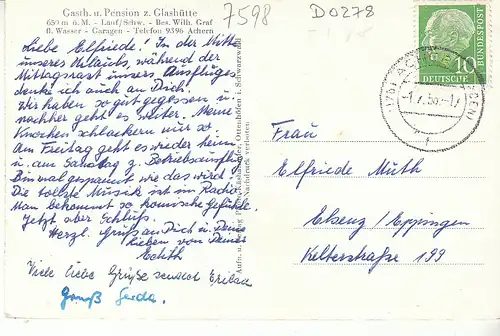 Gasth. u. Pension z. Glashütte
650 m ü. M. - Lauf/Schw. - Bes. Wilh. Graf
fl. Wasser - Garagen - Telefon 9396 Achern
7598
D0278
Liebe Elfriede! In der Mitte
unseres Urlaubs, während der
Mittagsrast unsers Ausfluges
denke ich auch an Dich.
Wir haben so gut gegessen u.
nachher geht es weiter. Meine
Knochen schlackern nur so.
Am Freitag geht es wieder heim
u. am Samstag z. Betriebsausflug
Bin mal gespannt wie das wird.
Die tollste Musik ist im Radio
Man bekommt so komische Gefühle.
Jetzt aber Schluß.
Herzl. Grüße an Dich u. Deine
Lieben von Deiner
Edith
Viele liebe Grüße sendet
Gerda.
10
DEUTSCHE
BUNDESPOST
Frau
Elfriede Muth
Elsenz / Eppingen
Kelterstraße 199